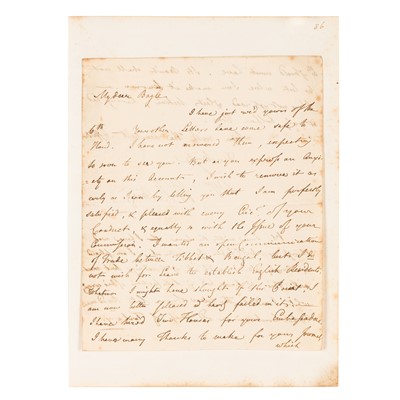 26
My dear Bogle
I have just rec'd yours of the
6th. Your other Letters have come safe to
Hand. I have not answered them, expecting
so soon to see you. But as you express an Anxi-
ety on this Account, I wish to remove it as
early as I can by telling you that I am perfectly
satisfied, & pleased with every Circ' of your
Conduct, & equally so with the Issue of your
Commission. I wanted an open Communication
of Trade between Thibet & Bengal, but I do
not wish for Leave to establish English Residents
I might have thought of the
am now better pleased at having failed in it
I have hired Two Houses for your Embassador
I have many Thanks to make for your
which